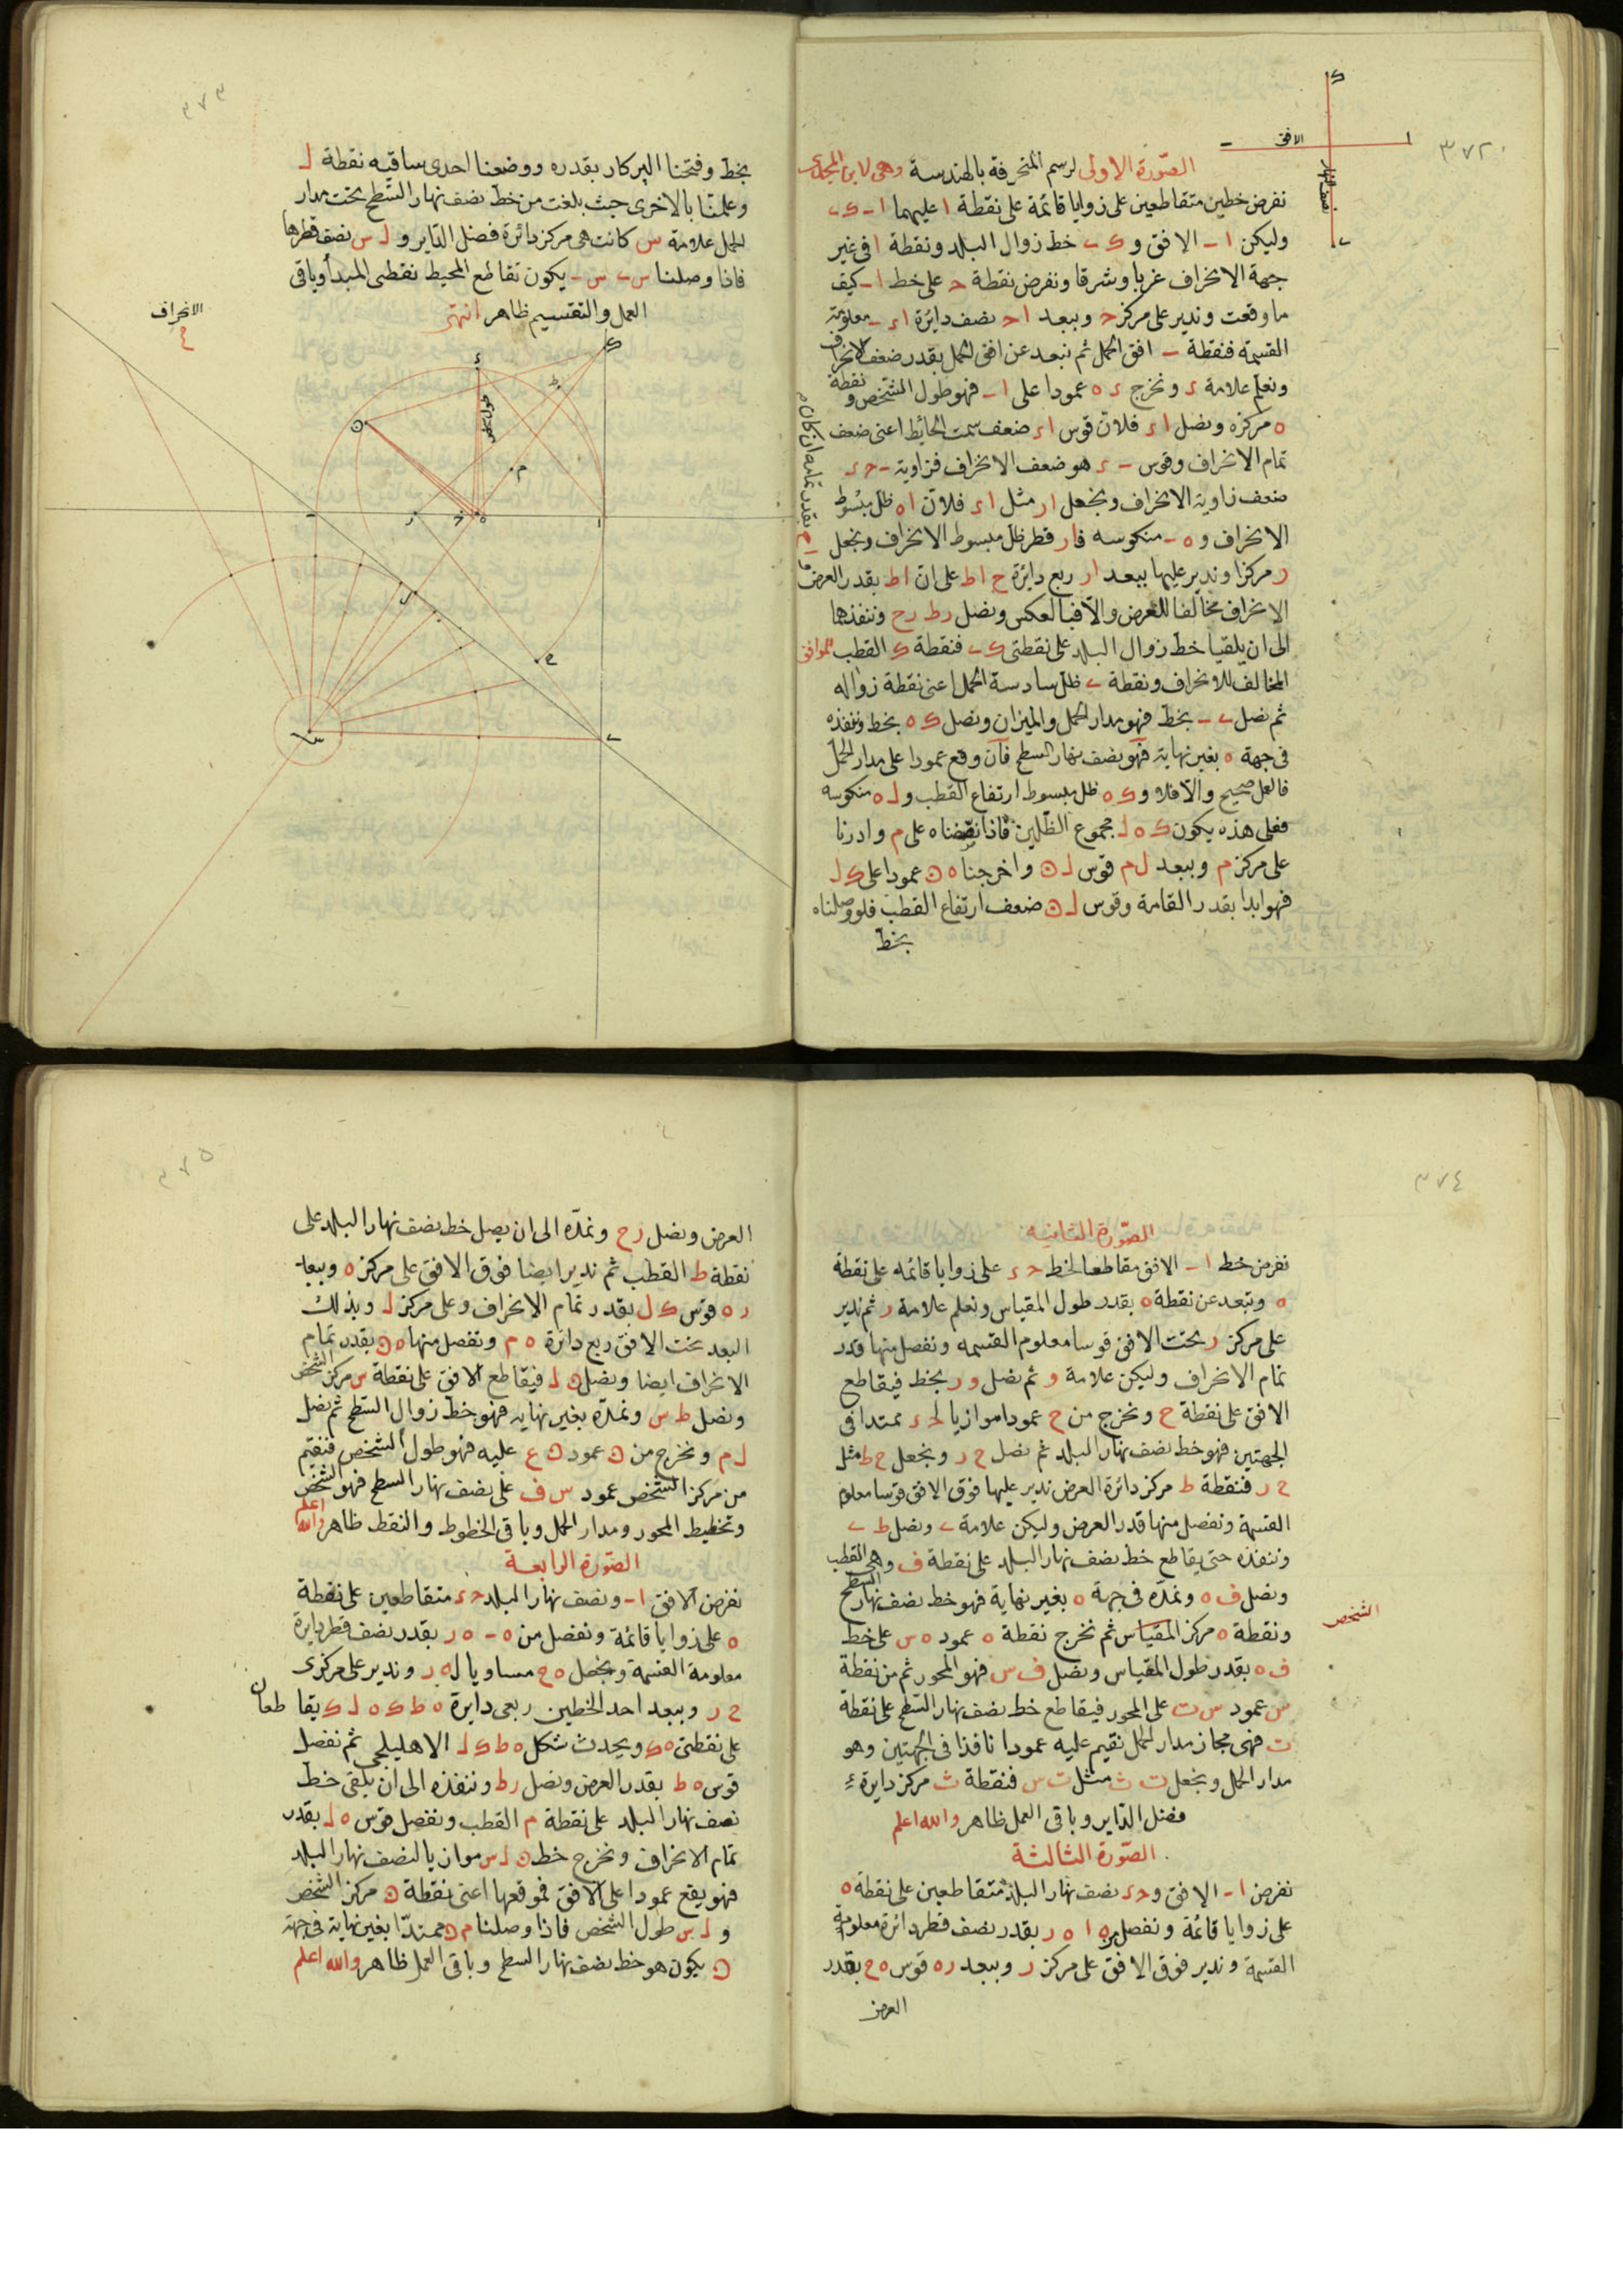 ٣٧٢
الافق
نصف النهار
الصورة الاولى لرسم المنحرفة بالهندسة وهى لابن المجدى
نفرض خطين متقاطعين على زوايا قائمة على نقطة ا عليهما ا ب ى ك
وليكن ا ب الافق و ك ى خط زوال البلد ونقطة ا فى غير
جهة الانحراف غربا وشرقا ونفرض نقطة ح على خط ا ب كيف
ما وقعت وندير على مركز ح وببعد ا ح نصف دائرة ا ء ب معلومة
القسمة فنقطة ب افق الحمل ثم نبعد عن افق الحمل بقدر ضعف الانحراف
ونعلم علامة ء ونخرج ء ه عمودا على ا ب فهو طول الشخص و نقطة
ه مركزه ونصل ا ء فلان قوس ا ء ضعف سمت الحائط اعنى ضعف
تمام الانحراف وقوس ب ء هو ضعف الانحراف فزاوية ب ح ء
ضعف زاوية الانحراف ونجعل ا ر مثل ا ء فلان ا ه ظل مبسوط
الانحراف و ه ب منكوسه فا ر قطر ظل مبسوط الانحراف ونجعل
ر مركزا وندير عليها ببعد ا ر ربع دائرة ح ا ط على ان ا ط بقدر العرض
الانحراف مخالفا للعرض والا فبالعكس ونصل ر ط ر ح وننفذها
الى ان يلقيا خط زوال البلد على نقطتى ك ى فنقطة ك القطب الموافق
المخالف للانحراف ونقطة ى ظل سادسة الحمل اعنى نقطة زواله
ثم نصل ى ب بخط فهو مدار الحمل والميزان ونصل ك ه بخط وننفذه
فى جهة ه بغير نهاية فهو نصف نهار السطح فان وقع عمودا على مدار الحمل
فالعمل صحيح والا فلا و ك ه ظل مبسوط ارتفاع القطب و ل ه منكوسه
فعلى هذه يكون ك ه ل مجموع الظلين فاذا نصفناه على م وادرنا
على مركز م وببعد ل م قوس ل ن واخرجنا ه ن عمودا على ك ل
فهو ابدا بقدر القامة وقوس ل ن ضعف ارتفاع القطب فلو وصلناه
بخط
٣٧٣
بخط وفتحنا البركار بقدره ووضعنا احدى ساقيه نقطة ل
وعلمنا بالاخرى حيث بلغت من خط نصف نهار السطح تحت مدار
الحمل علامة س كانت هى مركز دائرة فضل الداير و ل س نصف قطرها
فاذا وصلنا س ى س ب يكون تقاطع المحيط نقطى المبدأ وباقى
العمل والتقسيم ظاهر انتهى
الانحراف
طول الشخص
٣٧٤
الصورة الثانية
نفرض خط ا ب الافق مقاطعا لخط ح ء على زوايا قائمة على نقطة
ه ونبعد عن نقطة ه بقدر طول المقياس ونعلم علامة ر ثم ندير
على مركز ر تحت الافق قوسا معلوم القسمة ونفصل منها قدر
تمام الانحراف وليكن علامة و ثم نصل و ر بخط فيقاطع
الافق على نقطة ح ونخرج من ح عمودا موازيا لح ء ممتدا فى
الجهتين فهو خط نصف نهار البلد ثم نصل ح ر ونجعل ح ط مثل
ح ر فنقطة ط مركز دائرة العرض ندير عليها فوق الافق قوسا معلوم
القسمة ونفصل منها قدر العرض وليكن علامة ى ونصل ط ى
وننفذه حتى يقاطع خط نصف نهار البلد على نقطة ف وهى القطب
ونصل ف ه ونمده فى جهة ه بغير نهاية فهو خط نصف نهار السطح
ونقطة ه مركز المقياس ثم نخرج نقطة ه عمود ه س على خط
الشخص
ف ه بقدر طول المقياس ونصل ف س فهو المحور ثم من نقطة
س عمود س ت على المحور فيقاطع خط نصف نهار السطح على نقطة
ت فهى مجاز مدار الحمل نقيم عليه عمودا نافذا فى الجهتين وهو
مدار الحمل ونجعل ت ث مثل ت س فنقطة ث مركز دايرة
فضل الداير وباقى العمل ظاهر والله اعلم
الصورة الثالثة
نفرض ا ب الافق و ح ء نصف نهار البلد متقاطعين على نقطة ه
على زوايا قائمة ونفصل من ه ا ه ر بقدر نصف قطر دائرة معلومة
القسمة وندير فوق الافق على مركز ر وببعد ر ه قوس ه ح بقدر
العرض
٣٧٥
العرض ونصل ر ح ونمده الى ان يصل خط نصف نهار البلد على
نقطة ط القطب ثم ندير ايضا فوق الافق على مركز ه وببعد
ر ه قوس ك ل بقدر تمام الانحراف وعلى مركز ل وبذلك
البعد تحت الافق ربع دائرة ه م ونفصل منها ه ن بقدر تمام
الانحراف ايضا ونصل ن ل فيقاطع الافق على نقطة س مركز الشخص
ونصل ط س ونمده بغير نهاية فهو خط زوال السطح ثم نصل
ل م ونخرج من ن عمود ن ع عليه فهو طول الشخص فنقيم
من مركز الشخص عمود س ف على نصف نهار السطح فهو الشخص
وتخطيط المحور ومدار الحمل وباقى الخطوط والنقط ظاهر والله اعلم
الصورة الرابعة
نفرض الافق ا ب ونصف نهار البلد ح ء متقاطعين على نقطة
ه على زوايا قائمة ونفصل من ه ب ه ر بقدر نصف قطر دايرة
معلومة القسمة ونجعل ه ح مساويا له ر وندير على مركزى
ح ر وببعد احد الخطين ربعى دايرة ه ط ك ه ل ك يقاطعان
على نقطتى ه ك ويحدث شكل ه ط ك ل الاهليلجى ثم نفصل
قوس ه ط بقدر العرض ونصل ر ط وننفذه الى ان يلقى خط
نصف نهار البلد على نقطة م القطب ونفصل قوس ه ل بقدر
تمام الانحراف ونخرج خط ن ل س موازيا لنصف نهار البلد
فهو يقع عمودا على الافق فموقعها اعنى نقطة ن مركز الشخص
و ل س طول الشخص فاذا وصلنا م ن ممتدا بغير نهاية فى جهة
ن يكون هو خط نصف نهار السطح وباقى العمل ظاهر والله اعلم